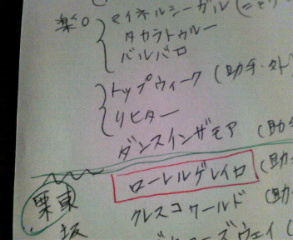 マイネルシーガル(
タカラトゥルー
バルバロ
トップウィーク(助手・外)
リヒター
ダンスインザモア(助
栗東
ローレルゲレイロ(助
坂
クレスコワールド(助
ーズウェイ(